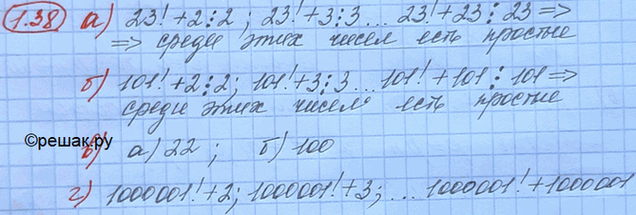 1.38 а) 23!+2⋮2; 23!+3⋮3... 23!+23⋮23 =>
=> среди этих чисел есть простые
б) 101!+2⋮2; 101!+3⋮3...101!+101⋮101 =>
среди этих чисел есть простые
©решак.ру
в) а) 22; б) 100
г) 1000001!+2; 1000001!+3; ... 1000001!+1000001